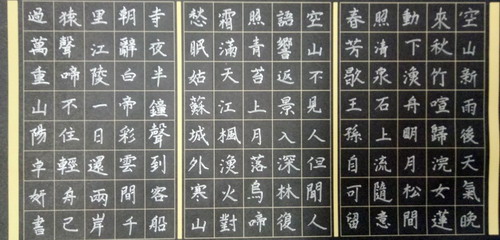 空山新雨後天氣晚
來秋竹喧歸浣女蓮
動下漁舟明月松間
照清泉石上流隨意
春芳歇王孫自可留
空山不見人但聞人
語響返景入深林復
照青苔上月落烏啼
霜滿天江楓漁火對
愁眠姑蘇城外寒山
寺夜半鐘聲到客船
朝辭白帝彩雲間千
里江陵一日還兩岸
猿聲啼不住輕舟已
過萬重山陽妍書